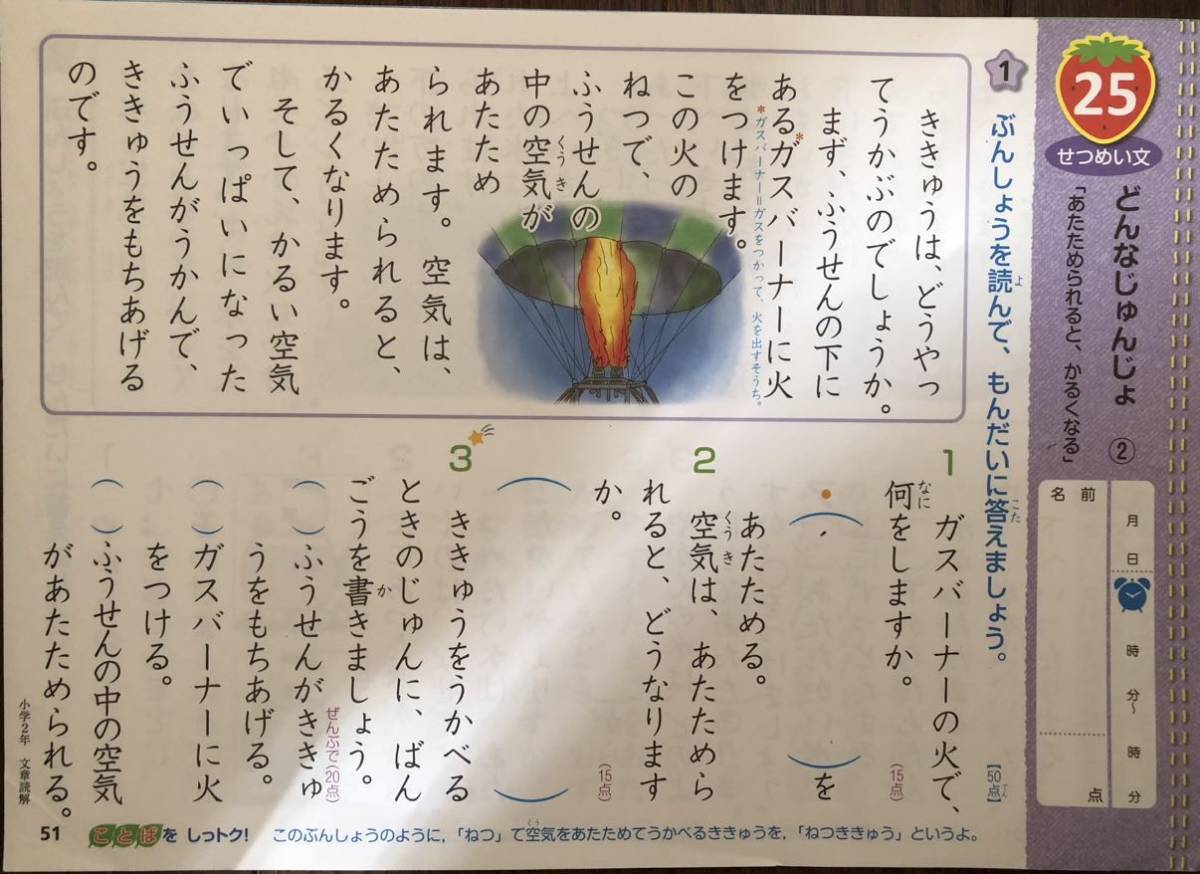 25
せつめい文
どんなじゅんじょ ②
「あたためられると、かるくなる」
月 日
時 分〜 時 分
名前
点
1
ぶんしょうを読んで、もんだいに答えましょう。
よ
こた
【50点】
てん
ききゅうは、どうやっ
てうかぶのでしょうか。
まず、ふうせんの下に
ある*ガスバーナーに火
*ガスバーナー=ガスをつかって、火を出すそうち。
をつけます。
この火の
ねつで、
ふうせんの
中の空気が
くうき
あたため
られます。空気は、
あたためられると、
かるくなります。
そして、かるい空気
でいっぱいになった
ふうせんがうかんで、
ききゅうをもちあげる
のです。
1
ガスバーナーの火で、
何をしますか。
なに
(15点)
( )を
あたためる。
2
空気は、あたためら
くうき
れると、どうなります
か。
(15点)
( )
3
ききゅうをうかべる
ときのじゅんに、ばん
ごうを書きましょう。
か
ぜんぶで(20点)
( )ふうせんがききゅ
うをもちあげる。
( )ガスバーナーに火
をつける。
( )ふうせんの中の空気
があたためられる。
小学2年 文章読解
51
ことばを しっトク! このぶんしょうのように,「ねつ」で空気をあたためてうかべるききゅうを,「ねつききゅう」というよ。
くう